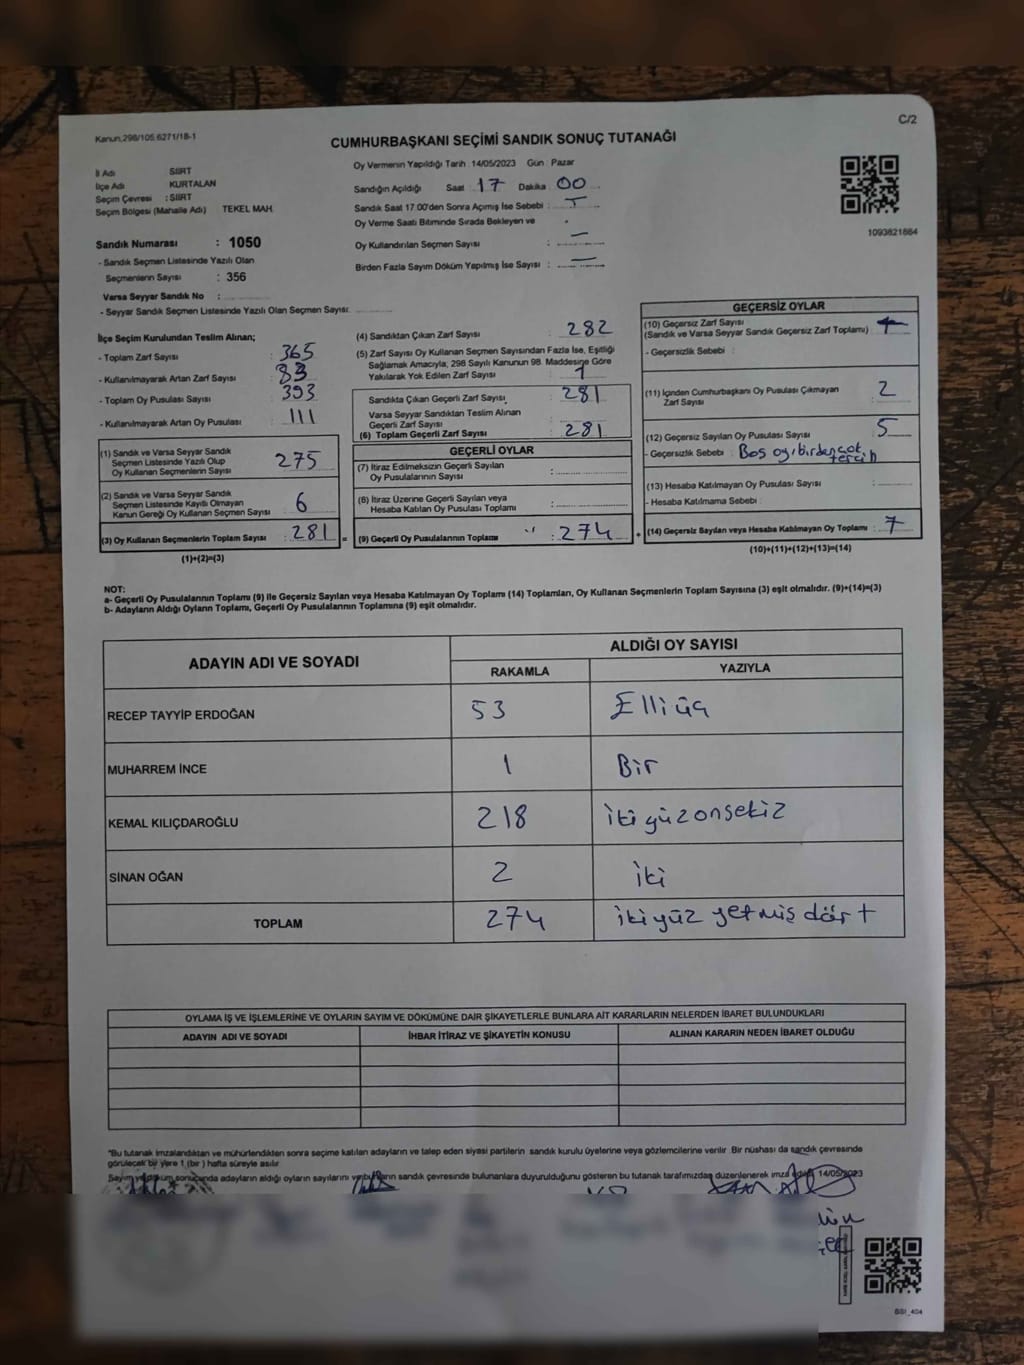 C/2
Kanun,298/105 6271/18-1
CUMHURBAŞKANI SEÇİMİ SANDIK SONUÇ TUTANAĞI
İl Adı SİİRT
İlçe Adı KURTALAN
Seçim Çevresi : SİİRT
Seçim Bölgesi (Mahalle Adı) TEKEL MAH.
Sandık Numarası : 1050
- Sandık Seçmen Listesinde Yazılı Olan
Seçmenlerin Sayısı : 356
Varsa Seyyar Sandık No :
- Seyyar Sandık Seçmen Listesinde Yazılı Olan Seçmen Sayısı:
Oy Vermenin Yapıldığı Tarih :14/05/2023 Gün : Pazar
Sandığın Açıldığı Saat : 17 Dakika : 00
Sandık Saat 17:00'den Sonra Açımış İse Sebebi :
Oy Verme Saati Bitiminde Sırada Bekleyen ve
Oy Kullandırılan Seçmen Sayısı : —
Birden Fazla Sayım Döküm Yapılmış İse Sayısı : —
1093821864
İlçe Seçim Kurulundan Teslim Alınan;
- Toplam Zarf Sayısı : 365
- Kullanılmayarak Artan Zarf Sayısı : 83
- Toplam Oy Pusulası Sayısı : 393
- Kullanılmayarak Artan Oy Pusulası : 111
(1) Sandık ve Varsa Seyyar Sandık
Seçmen Listesinde Yazılı Olup
Oy Kullanan Seçmenlerin Sayısı : 275
(2) Sandık ve Varsa Seyyar Sandık
Seçmen Listesinde Kayıtlı Olmayan
Kanun Gereği Oy Kullanan Seçmen Sayısı : 6
(3) Oy Kullanan Seçmenlerin Toplam Sayısı : 281 =
(1)+(2)=(3)
(4) Sandıktan Çıkan Zarf Sayısı : 282
(5) Zarf Sayısı Oy Kullanan Seçmen Sayısından Fazla İse, Eşitliği
Sağlamak Amacıyla, 298 Sayılı Kanunun 98. Maddesine Göre
Yakılarak Yok Edilen Zarf Sayısı : 1
Sandıkta Çıkan Geçerli Zarf Sayısı : 281
Varsa Seyyar Sandıktan Teslim Alınan
Geçerli Zarf Sayısı
(6) Toplam Geçerli Zarf Sayısı : 281
GEÇERLİ OYLAR
(7) İtiraz Edilmeksizin Geçerli Sayılan
Oy Pusulalarının Sayısı :
(8) İtiraz Üzerine Geçerli Sayılan veya
Hesaba Katılan Oy Pusulası Toplamı :
(9) Geçerli Oy Pusulalarının Toplamı : 274 +
GEÇERSİZ OYLAR
(10) Geçersiz Zarf Sayısı
(Sandık ve Varsa Seyyar Sandık Geçersiz Zarf Toplamı)
- Geçersizlik Sebebi :
(11) İçinden Cumhurbaşkanı Oy Pusulası Çıkmayan
Zarf Sayısı : 2
(12) Geçersiz Sayılan Oy Pusulası Sayısı : 5
- Geçersizlik Sebebi : Boş oy, birden çok
tercih
(13) Hesaba Katılmayan Oy Pusulası Sayısı :
- Hesaba Katılmama Sebebi :
(14) Geçersiz Sayılan veya Hesaba Katılmayan Oy Toplamı : 7
(10)+(11)+(12)+(13)=(14)
NOT:
a- Geçerli Oy Pusulalarının Toplamı (9) ile Geçersiz Sayılan veya Hesaba Katılmayan Oy Toplamı (14) Toplamları, Oy Kullanan Seçmenlerin Toplam Sayısına (3) eşit olmalıdır. (9)+(14)=(3)
b- Adayların Aldığı Oyların Toplamı, Geçerli Oy Pusulalarının Toplamına (9) eşit olmalıdır.
ADAYIN ADI VE SOYADI ALDIĞI OY SAYISI
RAKAMLA YAZIYLA
RECEP TAYYİP ERDOĞAN 53 Elli üç
MUHARREM İNCE 1 Bir
KEMAL KILIÇDAROĞLU 218 İki yüz onsekiz
SİNAN OĞAN 2 İki
TOPLAM 274 İki yüz yetmiş dört
OYLAMA İŞ VE İŞLEMLERİNE VE OYLARIN SAYIM VE DÖKÜMÜNE DAİR ŞİKAYETLERLE BUNLARA AİT KARARLARIN NELERDEN İBARET BULUNDUKLARI
ADAYIN ADI VE SOYADI İHBAR İTİRAZ VE ŞİKAYETİN KONUSU ALINAN KARARIN NEDEN İBARET OLDUĞU
*Bu tutanak imzalandıktan ve mühürlendikten sonra seçime katılan adayların ve talep eden siyasi partilerin sandık kurulu üyelerine veya gözlemcilerine verilir. Bir nüshası da sandık çevresinde
görülecek bir yere 1 (bir) hafta süreyle asılır
Sayım ve döküm sonucunda adayların aldığı oyların sayılarını ve bunların sandık çevresinde bulunanlara duyurulduğunu gösteren bu tutanak tarafımızdan düzenlenerek imza edildi 14/05/2023
BSI_404